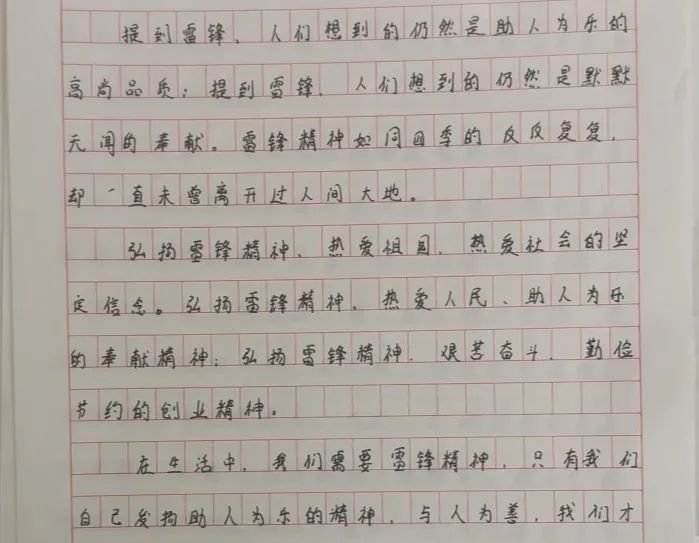 提到雷锋，人们想到的仍然是助人为乐的
高尚品质；提到雷锋，人们想到的仍然是默默
无闻的奉献。雷锋精神如同四季的反反复复，
却一直未曾离开过人间大地。
弘扬雷锋精神、热爱祖国、热爱社会的坚
定信念。弘扬雷锋精神、热爱人民、助人为乐
的奉献精神；弘扬雷锋精神、艰苦奋斗、勤俭
节约的创业精神。
在生活中，我们需要雷锋精神，只有我们
自己发扬助人为乐的精神，与人为善，我们才